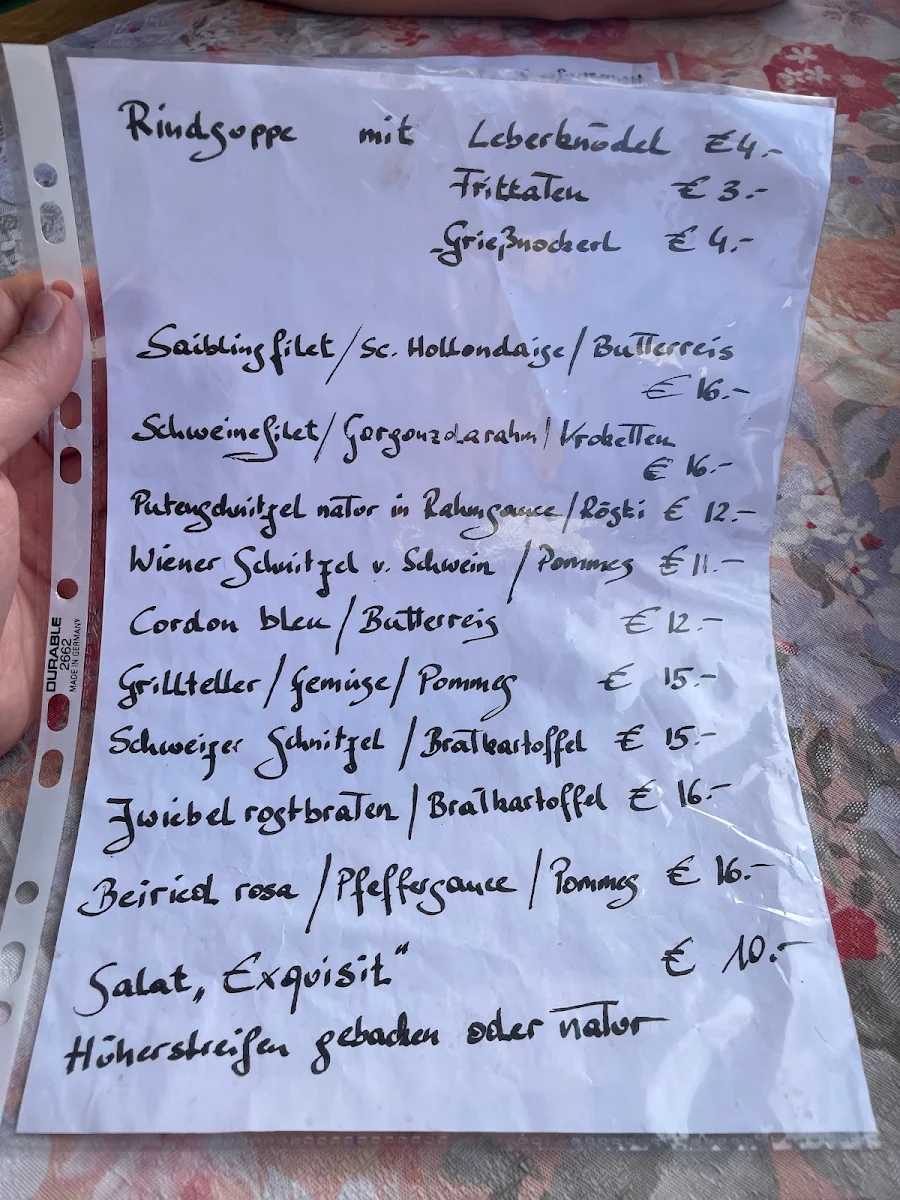 Rindsuppe mit Leberknödel € 4.-
Frittaten € 3.-
-Grießnockerl € 4.-
Saiblingfilet / Sc. Hollondaise / Butterreis
€ 16.-
Schweinefilet / Gorgonzolarahm / Kroketten
€ 16.-
Putenschnitzel natur in Rahmsauce / Rösti € 12.-
Wiener Schnitzel v. Schwein / Pommes € 11.-
Cordon bleu / Butterreis € 12.-
Grillteller / Gemüse / Pommes € 15.-
Schweizer Schnitzel / Bratkartoffel € 15.-
Zwiebelrostbraten / Bratkartoffel € 16.-
Beiried rosa / Pfeffersauce / Pommes € 16.-
Salat „Exquisit" € 10.-
Hüherstreifen gebacken oder natur
DURABLE
2662
MADE IN GERMANY